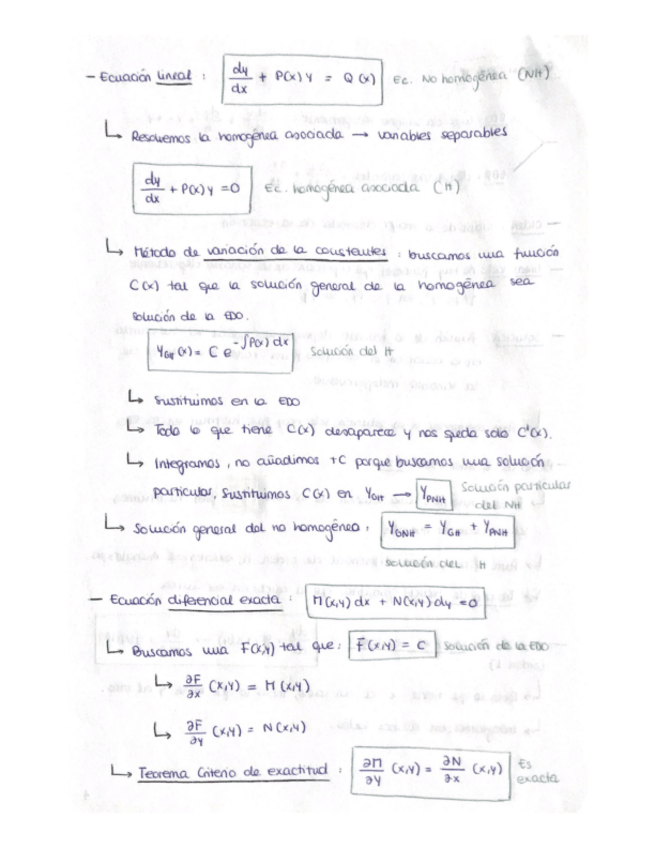 - Ecuación lineal : dy/dx + P(x) y = Q(x) Ec. No homogénea (NH)
↳ Resolvemos la homogénea asociada → variables separables
dy/dx + P(x) y = 0 Ec. homogénea asociada (H)
↳ Método de variación de la constantes : buscamos una función
C(x) tal que la solución general de la homogénea sea
solución de la EDO.
Y_GH (x) = C e^(-∫P(x) dx) Solución del H
↳ Sustituimos en la EDO
↳ Todo lo que tiene C(x) desaparece y nos queda solo C'(x).
↳ Integramos, no añadimos +C porque buscamos una solución
particular. Sustituimos C(x) en Y_GH → Y_PNH Solución particular del NH
↳ Solución general del no homogénea : Y_GNH = Y_GH + Y_PNH
solución del H
- Ecuación diferencial exacta : M(x,y) dx + N(x,y) dy = 0
↳ Buscamos una F(x,y) tal que : F(x,y) = C Solución de la EDO
↳ ∂F/∂x (x,y) = M(x,y)
↳ ∂F/∂y (x,y) = N(x,y)
↳ Teorema Criterio de exactitud : ∂M/∂y (x,y) = ∂N/∂x (x,y) Es exacta